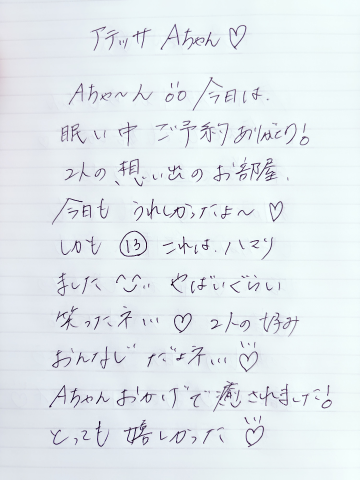 アテッサ Aちゃん♡
Aちゃ〜ん öö 今日は、
眠い中 ご予約ありがとう!
2人の想い出のお部屋、
今日も うれしかったよ〜♡
しかも ⑬ これは、ハマり
ました^^;; やばいぐらい
笑ったネ!!! ♡ 2人の好み
おんなじだよネ!!!♡
Aちゃんおかげで癒されました!
とっても 嬉しかった♡